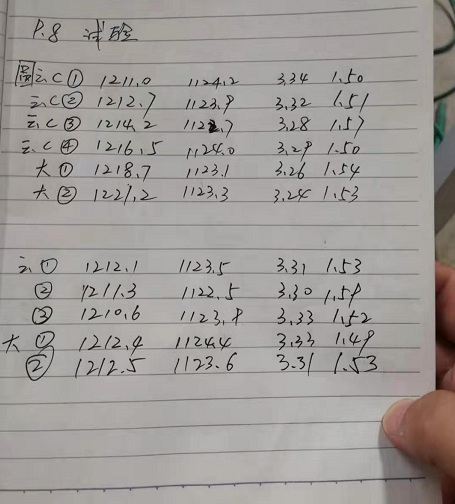 P.8 试验
云C① 1211.0 1124.2 3.34 1.50
云C② 1212.7 1123.9 3.32 1.51
云C③ 1214.2 1122.7 3.28 1.57
云C④ 1216.5 1124.0 3.29 1.50
大① 1218.7 1123.1 3.26 1.54
大② 1221.2 1123.3 3.24 1.53
云① 1212.1 1123.5 3.31 1.53
② 1211.3 1122.5 3.30 1.59
③ 1210.6 1123.8 3.33 1.52
大① 1212.4 1124.4 3.33 1.49
② 1212.5 1123.6 3.31 1.53